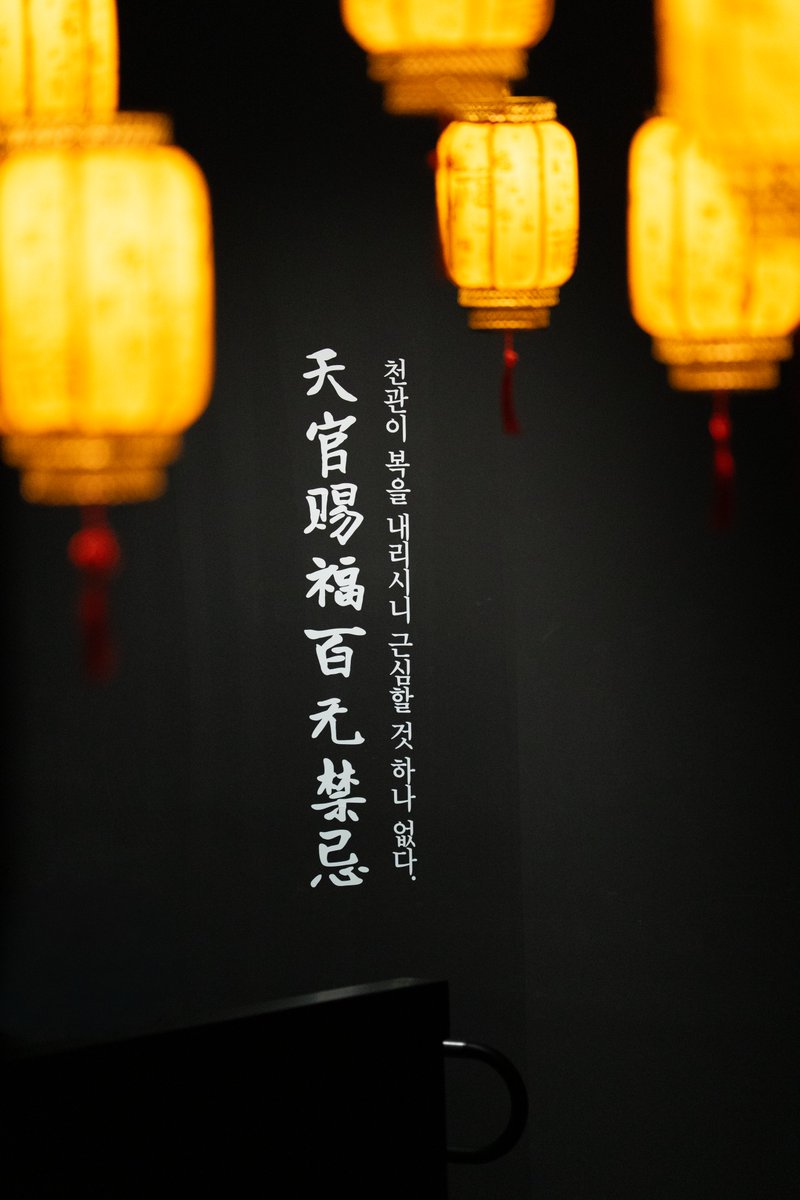 天官赐福百无禁忌
천관이 복을 내리시니 근심할 것 하나 없다.